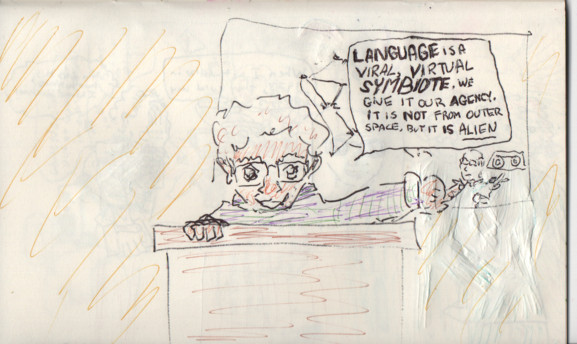 LANGUAGE IS A
VIRAL, VIRTUAL
SYMBIOTE, WE
GIVE IT OUR AGENCY.
IT IS NOT FROM OUTER
SPACE, BUT IT IS ALIEN